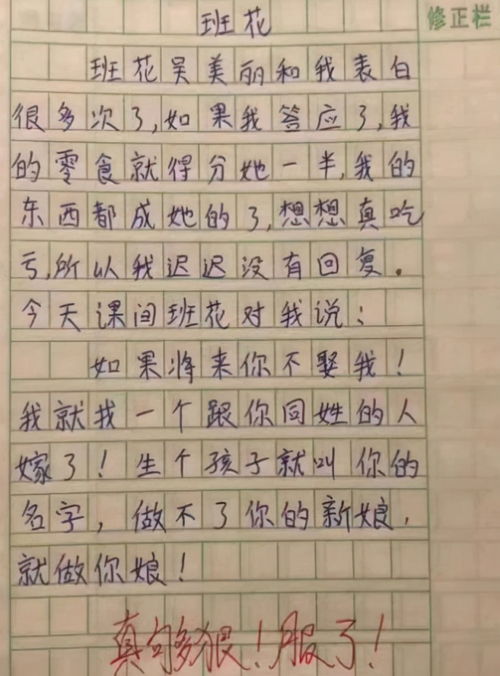 班花
修正栏
班花吴美丽和我表白
很多次了,如果我答应了,我
的零食就得分她一半,我的
东西都成她的了,想想真吃
亏,所以我迟迟没有回复。
今天课间班花对我说:
如果将来你不娶我!
我就找一个跟你同姓的人
嫁了!生个孩子就叫你的
名字,做不了你的新娘,
就做你娘!
真句多狠!服了!